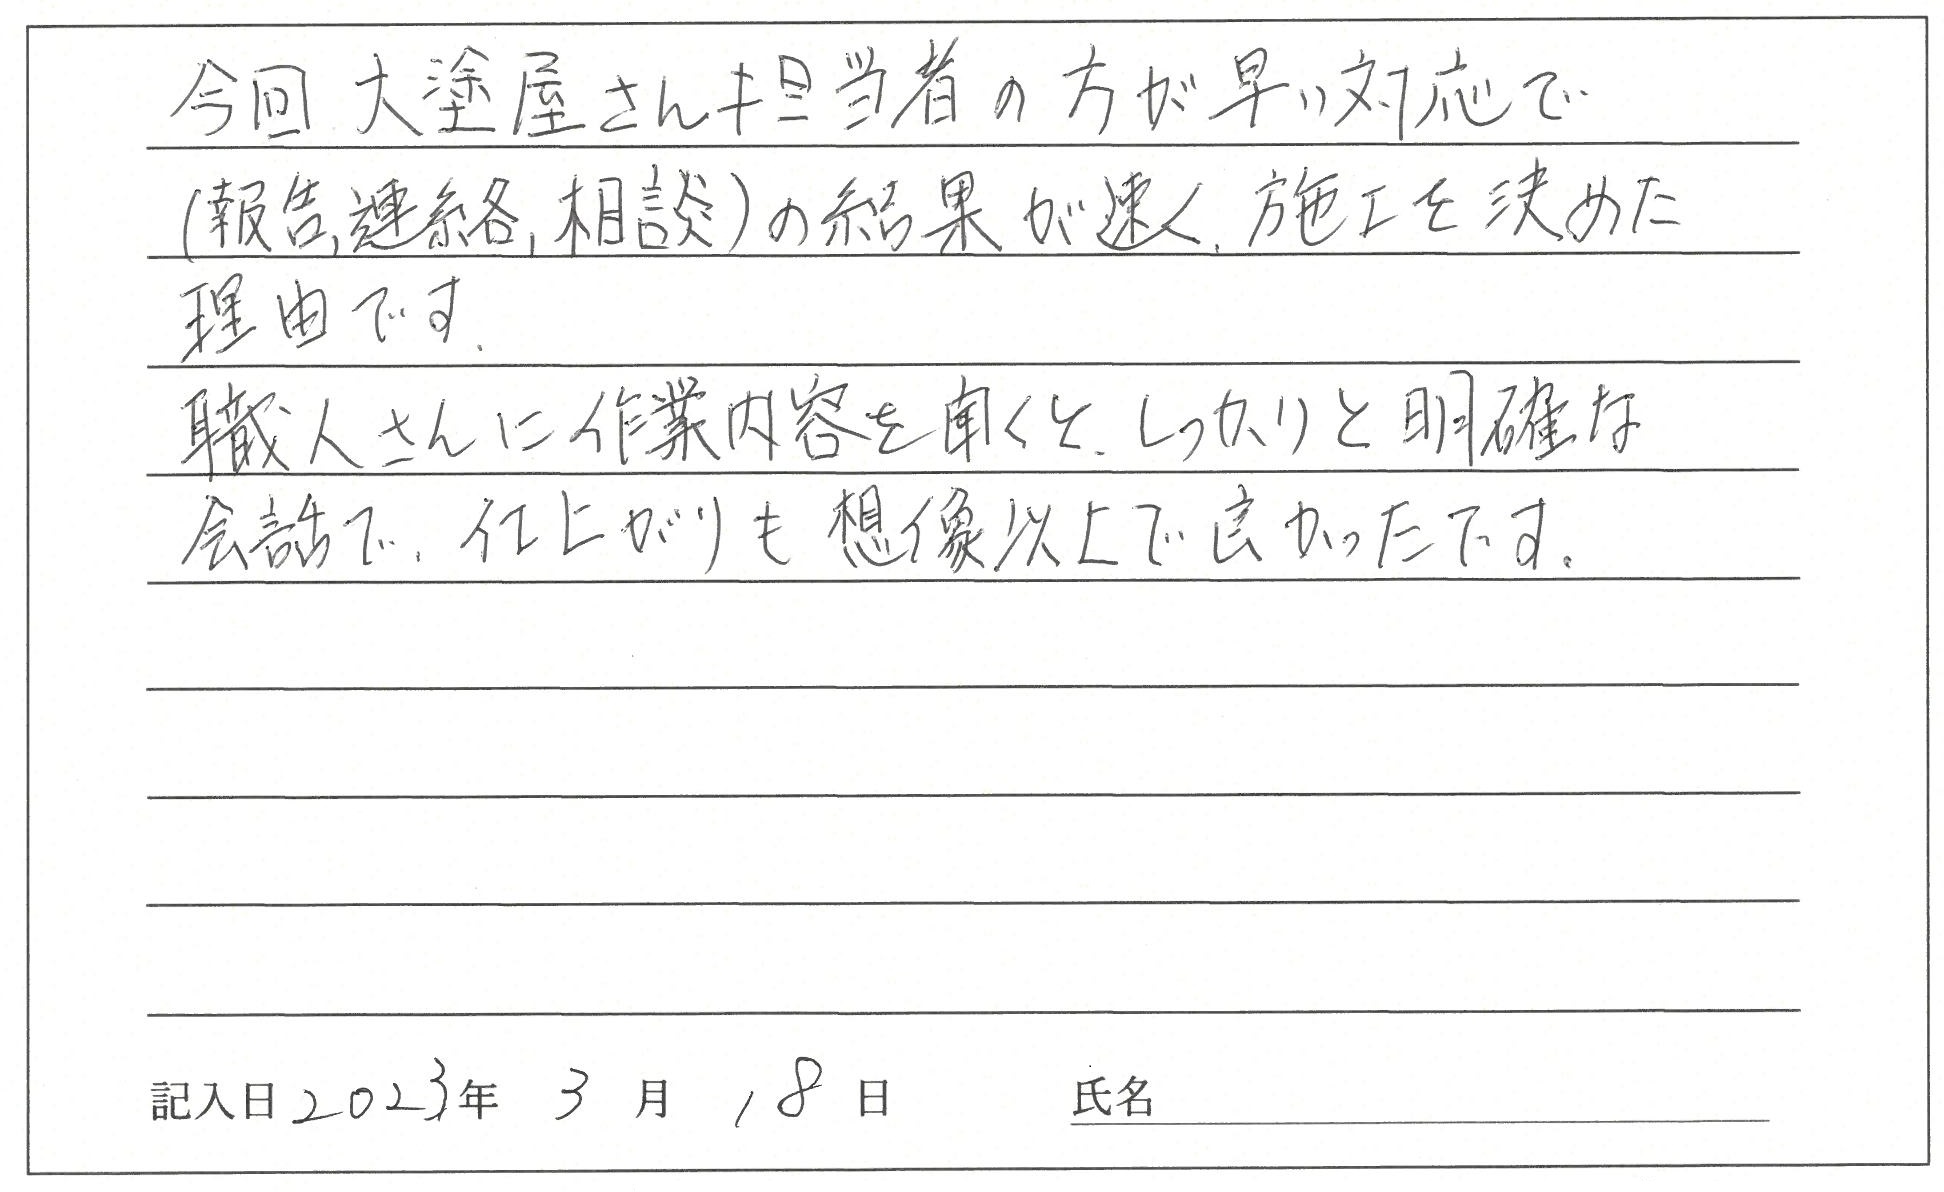 今回 大塗屋さん担当者の方が早い対応で
(報告,連絡,相談)の結果が速く、施工を決めた
理由です。
職人さんに作業内容を聞くと、しっかりと明確な
会話で、仕上がりも想像以上で良かったです。
記入日 2023年 3月 18日 氏名